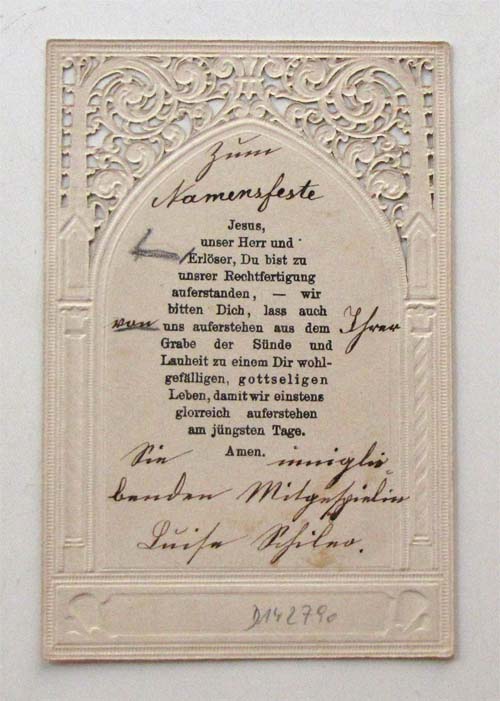 Zum
Namensfeste
Jesus,
unser Herr und
Erlöser, Du bist zu
unsrer Rechtfertigung
auferstanden, — wir
bitten Dich, lass auch
von uns auferstehen aus dem Ihrer
Grabe der Sünde und
Lauheit zu einem Dir wohl-
gefälligen, gottseligen
Leben, damit wir einstens
glorreich auferstehen
am jüngsten Tage.
Amen.
Sie inniglie
benden Mitgespielin
Luise
D142790